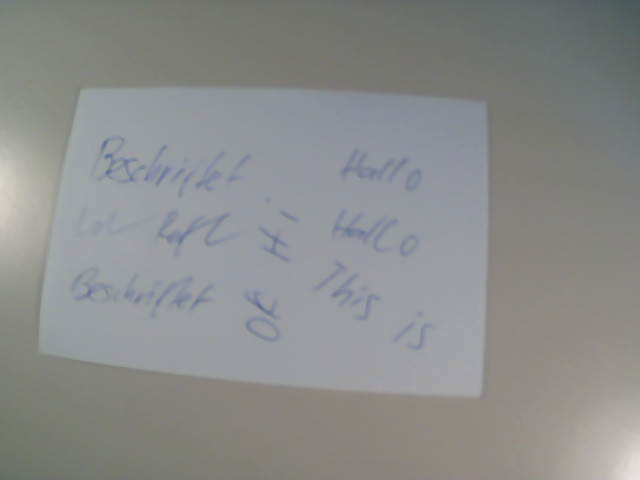 Beschriftet
Hallo
Hi
Hallo
Beschriftet
OK
This is